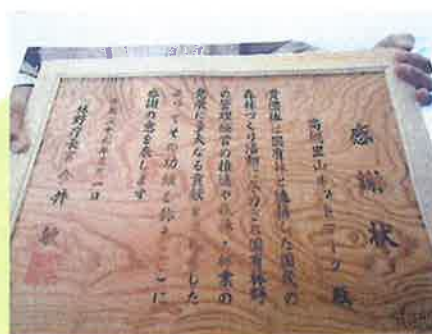 感謝状
里山ネットワーク 殿
貴団体は国有林と連携した国民の
森林づくり活動に尽力され国有林野
の管理経営の推進や森林・林業の
発展に多大なる貢献をされました
よってその功績を称えここに
感謝の意を表します
月一日
林野庁長官 今井 敏